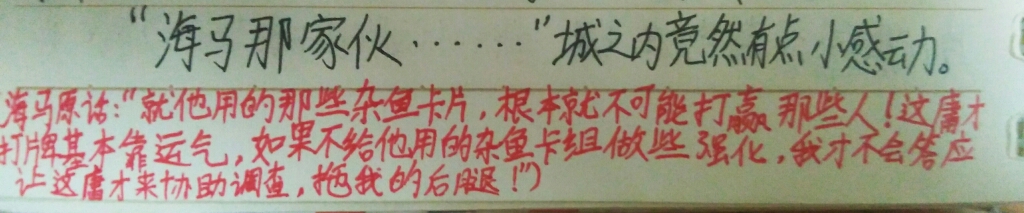 “海马那家伙······”城之内竟然有点小感动。
海马原话：“就他用的那些杂鱼卡片，根本就不可能打赢那些人！这庸才
打牌基本靠运气，如果不给他用的杂鱼卡组做些强化，我才不会答应
让这庸才来协助调查，拖我的后腿！”）